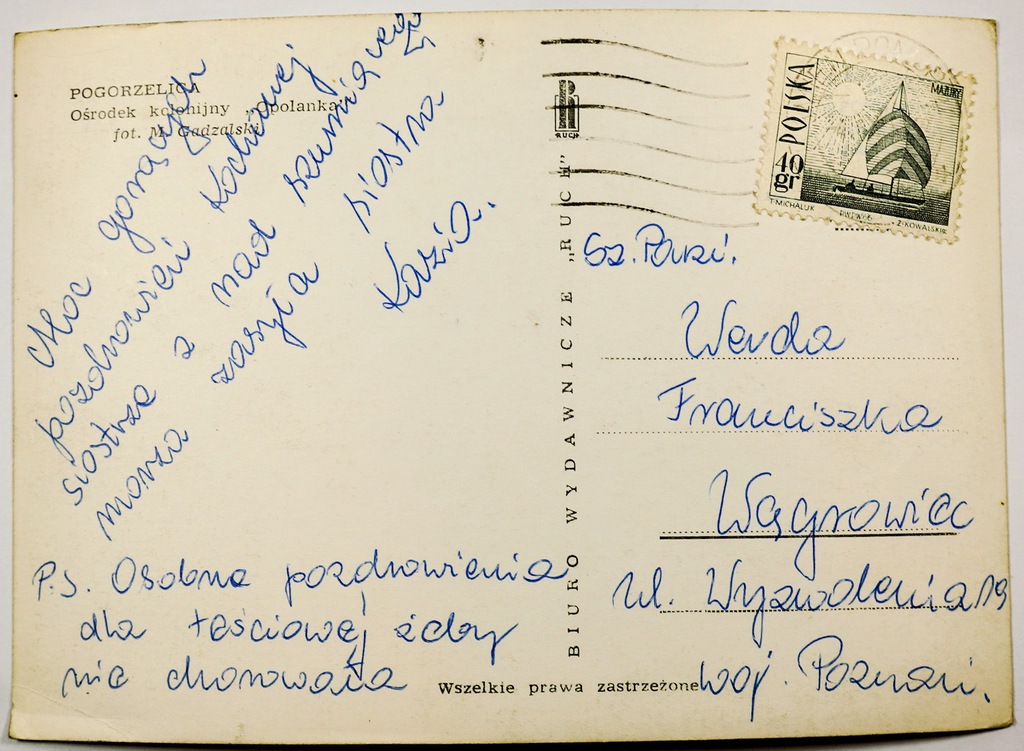 POGORZELICA
Ośrodek kolonijny „Opolanka"
fot. M. Gadzalski
Moc gorących
pozdrowień Kochanej
siostrze z nad szumiącego
morza zasyła siostra
Kazia.
P.S. Osobne pozdrowienia
dla teściowej żeby
nie chorowała
BIURO WYDAWNICZE „RUCH"
RUCH
Wszelkie prawa zastrzeżone
POLSKA
MAZURY
40
gr
T. MICHALUK
PWPW-66
Z. KOWALSKI
Sz. Pani.
Werda
Franciszka
Wągrowiec
ul. Wyzwolenia 19
woj. Poznań.